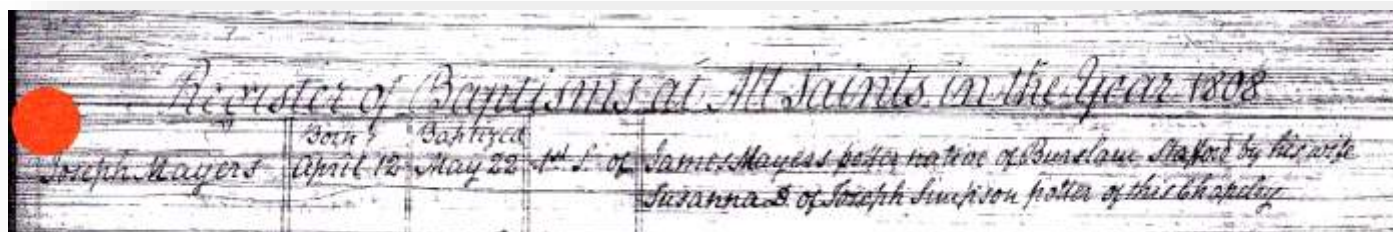 Register of Baptisms at All Saints in the Year 1808
Born Baptized
Joseph Mayers April 12 May 22 1st S. of James Mayers potter native of Burslam Stafford by his wife
Susanna D of Joseph Simpson potter of this Chapelry